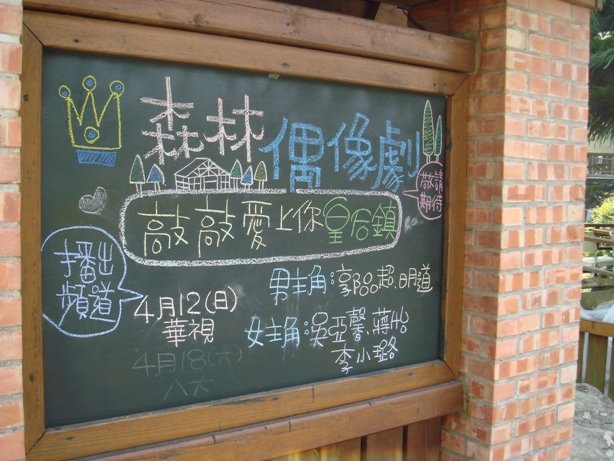 森林偶像劇
敬請
期待
敲敲愛上你皇后鎮
播出
頻道
4月12(日)
華視
4月18(六)
八大
男主角:郭品超.明道
女主角:吳亞馨.蔣怡
李小璐